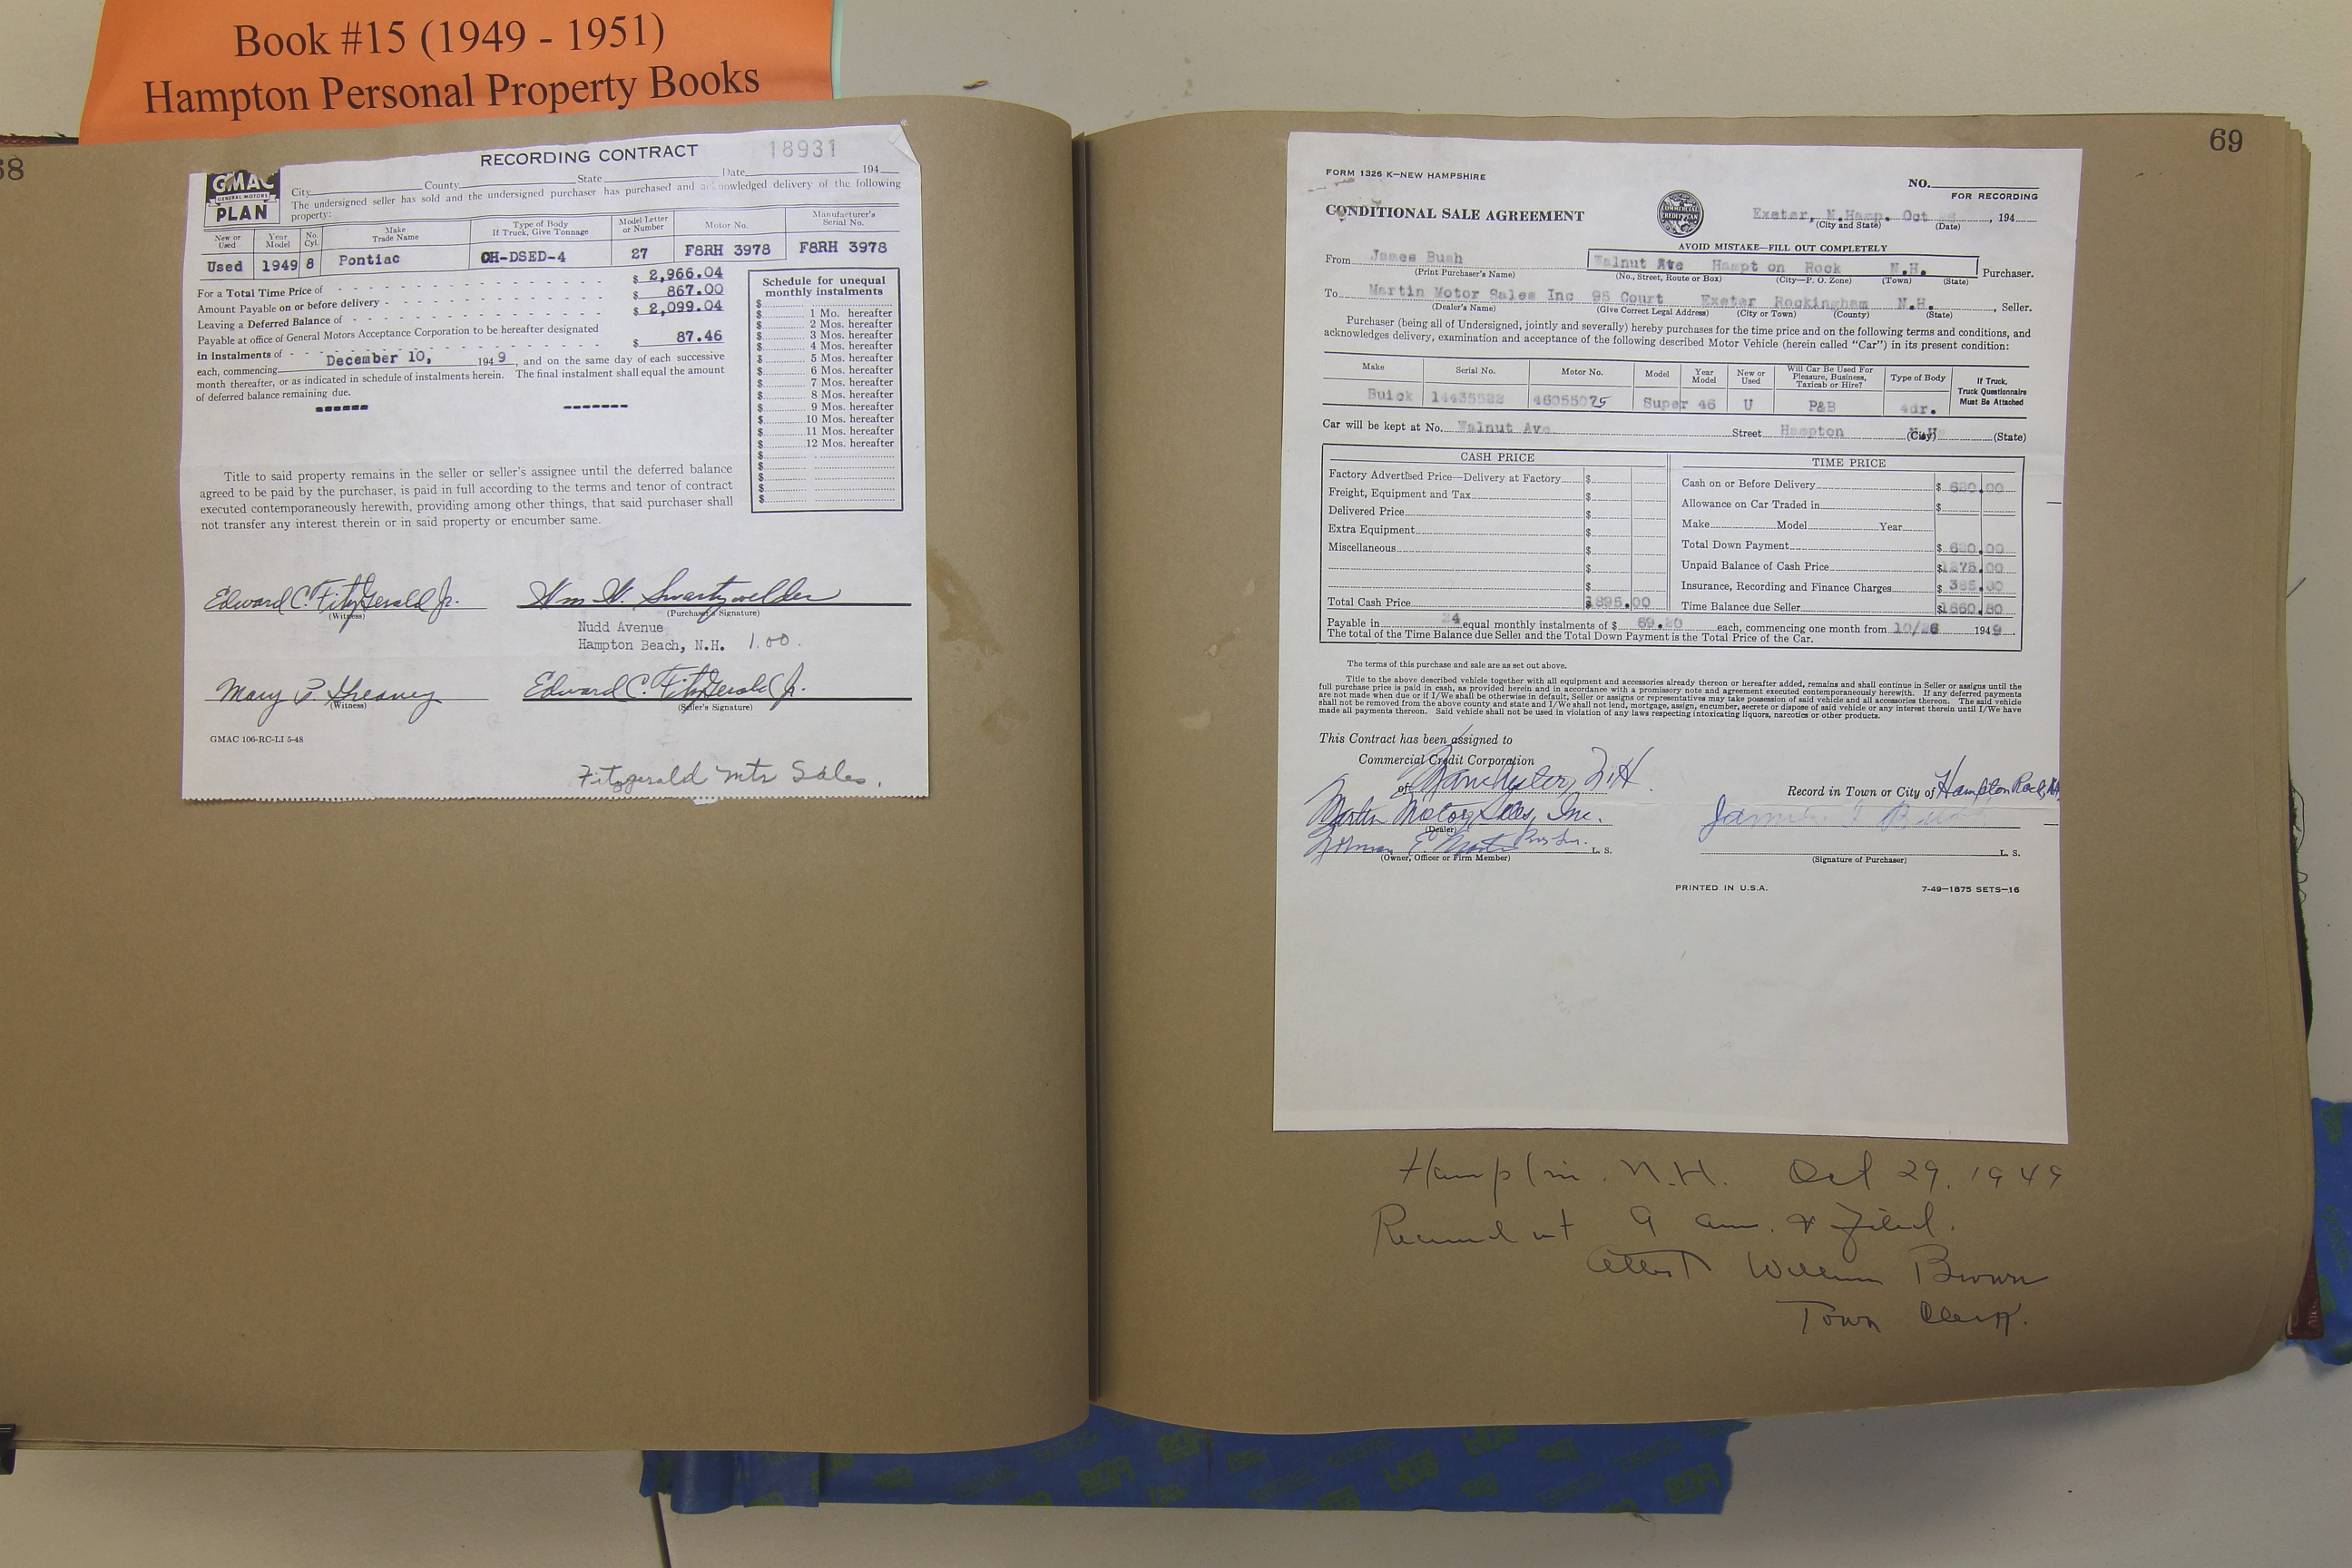 Book #15 (1949 - 1951)
Hampton Personal Property Books
68
RECORDING CONTRACT 18931
GMAC
GENERAL MOTORS
PLAN
City County State Date 194
The undersigned seller has sold and the undersigned purchaser has purchased and acknowledged delivery of the following
property:
New or Used Year Model No. Cyl. Make Trade Name Type of Body If Truck, Give Tonnage Model Letter or Number Motor No. Manufacturer's Serial No.
Used 1949 8 Pontiac CH-DSED-4 27 F8RH 3978 F8RH 3978
For a Total Time Price of $ 2,966.04
Amount Payable on or before delivery $ 867.00
Leaving a Deferred Balance of $ 2,099.04
Payable at office of General Motors Acceptance Corporation to be hereafter designated
in instalments of $ 87.46
each, commencing December 10, 1949, and on the same day of each successive
month thereafter, or as indicated in schedule of instalments herein. The final instalment shall equal the amount
of deferred balance remaining due.
Schedule for unequal
monthly instalments
$
$ 1 Mo. hereafter
$ 2 Mos. hereafter
$ 3 Mos. hereafter
$ 4 Mos. hereafter
$ 5 Mos. hereafter
$ 6 Mos. hereafter
$ 7 Mos. hereafter
$ 8 Mos. hereafter
$ 9 Mos. hereafter
$ 10 Mos. hereafter
$ 11 Mos. hereafter
$ 12 Mos. hereafter
$
$
$
$
$
Title to said property remains in the seller or seller's assignee until the deferred balance
agreed to be paid by the purchaser, is paid in full according to the terms and tenor of contract
executed contemporaneously herewith, providing among other things, that said purchaser shall
not transfer any interest therein or in said property or encumber same.
Edward C. FitzGerald Jr. Wm W. Swartzwelder
(Witness) (Purchaser's Signature)
Nudd Avenue
Hampton Beach, N.H. 1.00.
Mary P. Greaney Edward C. FitzGerald Jr.
(Witness) (Seller's Signature)
GMAC 106-RC-LI 5-48
Fitzgerald Mtr Sales.
69
FORM 1326 K—NEW HAMPSHIRE
NO.
FOR RECORDING
CONDITIONAL SALE AGREEMENT
COMMERCIAL CREDIT PLAN
Exeter, N.Hamp. Oct 26, 194
(City and State) (Date)
AVOID MISTAKE—FILL OUT COMPLETELY
From James Bush Walnut Ave Hampton Rock N.H. Purchaser.
(Print Purchaser's Name) (No., Street, Route or Box) (City—P. O. Zone) (Town) (State)
To Martin Motor Sales Inc 95 Court Exeter Rockingham N.H., Seller.
(Dealer's Name) (Give Correct Legal Address) (City or Town) (County) (State)
Purchaser (being all of Undersigned, jointly and severally) hereby purchases for the time price and on the following terms and conditions, and
acknowledges delivery, examination and acceptance of the following described Motor Vehicle (herein called "Car") in its present condition:
Make Serial No. Motor No. Model Year Model New or Used Will Car Be Used For Pleasure, Business, Taxicab or Hire? Type of Body If Truck, Truck Questionnaire Must Be Attached
Buick 14435522 46055075 Super 46 U P&B 4dr.
Car will be kept at No. Walnut Ave Street Hampton (City) N.H. (State)
CASH PRICE
Factory Advertised Price—Delivery at Factory $
Freight, Equipment and Tax $
Delivered Price $
Extra Equipment $
Miscellaneous $
$
$
Total Cash Price 1895.00
TIME PRICE
Cash on or Before Delivery $ 620.00
Allowance on Car Traded in $
Make Model Year
Total Down Payment $ 620.00
Unpaid Balance of Cash Price $1275.00
Insurance, Recording and Finance Charges $ 385.80
Time Balance due Seller $1660.80
Payable in 24 equal monthly instalments of $ 69.20 each, commencing one month from 10/26 1949.
The total of the Time Balance due Seller and the Total Down Payment is the Total Price of the Car.
The terms of this purchase and sale are as set out above.
Title to the above described vehicle together with all equipment and accessories already thereon or hereafter added, remains and shall continue in Seller or assigns until the
full purchase price is paid in cash, as provided herein and in accordance with a promissory note and agreement executed contemporaneously herewith. If any deferred payments
are not made when due or if I/We shall be otherwise in default, Seller or assigns or representatives may take possession of said vehicle and all accessories thereon. The said vehicle
shall not be removed from the above county and state and I/We shall not lend, mortgage, assign, encumber, secrete or dispose of said vehicle or any interest therein until I/We have
made all payments thereon. Said vehicle shall not be used in violation of any laws respecting intoxicating liquors, narcotics or other products.
This Contract has been assigned to
Commercial Credit Corporation
of Manchester, N.H. Record in Town or City of Hampton Rock, NH
Martin Motor Sales, Inc. James Bush
(Dealer)
Norman E. Martin L. S. L. S.
(Owner, Officer or Firm Member) (Signature of Purchaser)
PRINTED IN U.S.A. 7-49—1875 SETS—16
Hampton. N.H. Oct 29, 1949
Received at 9 am. & filed.
Attest William Brown
Town Clerk.